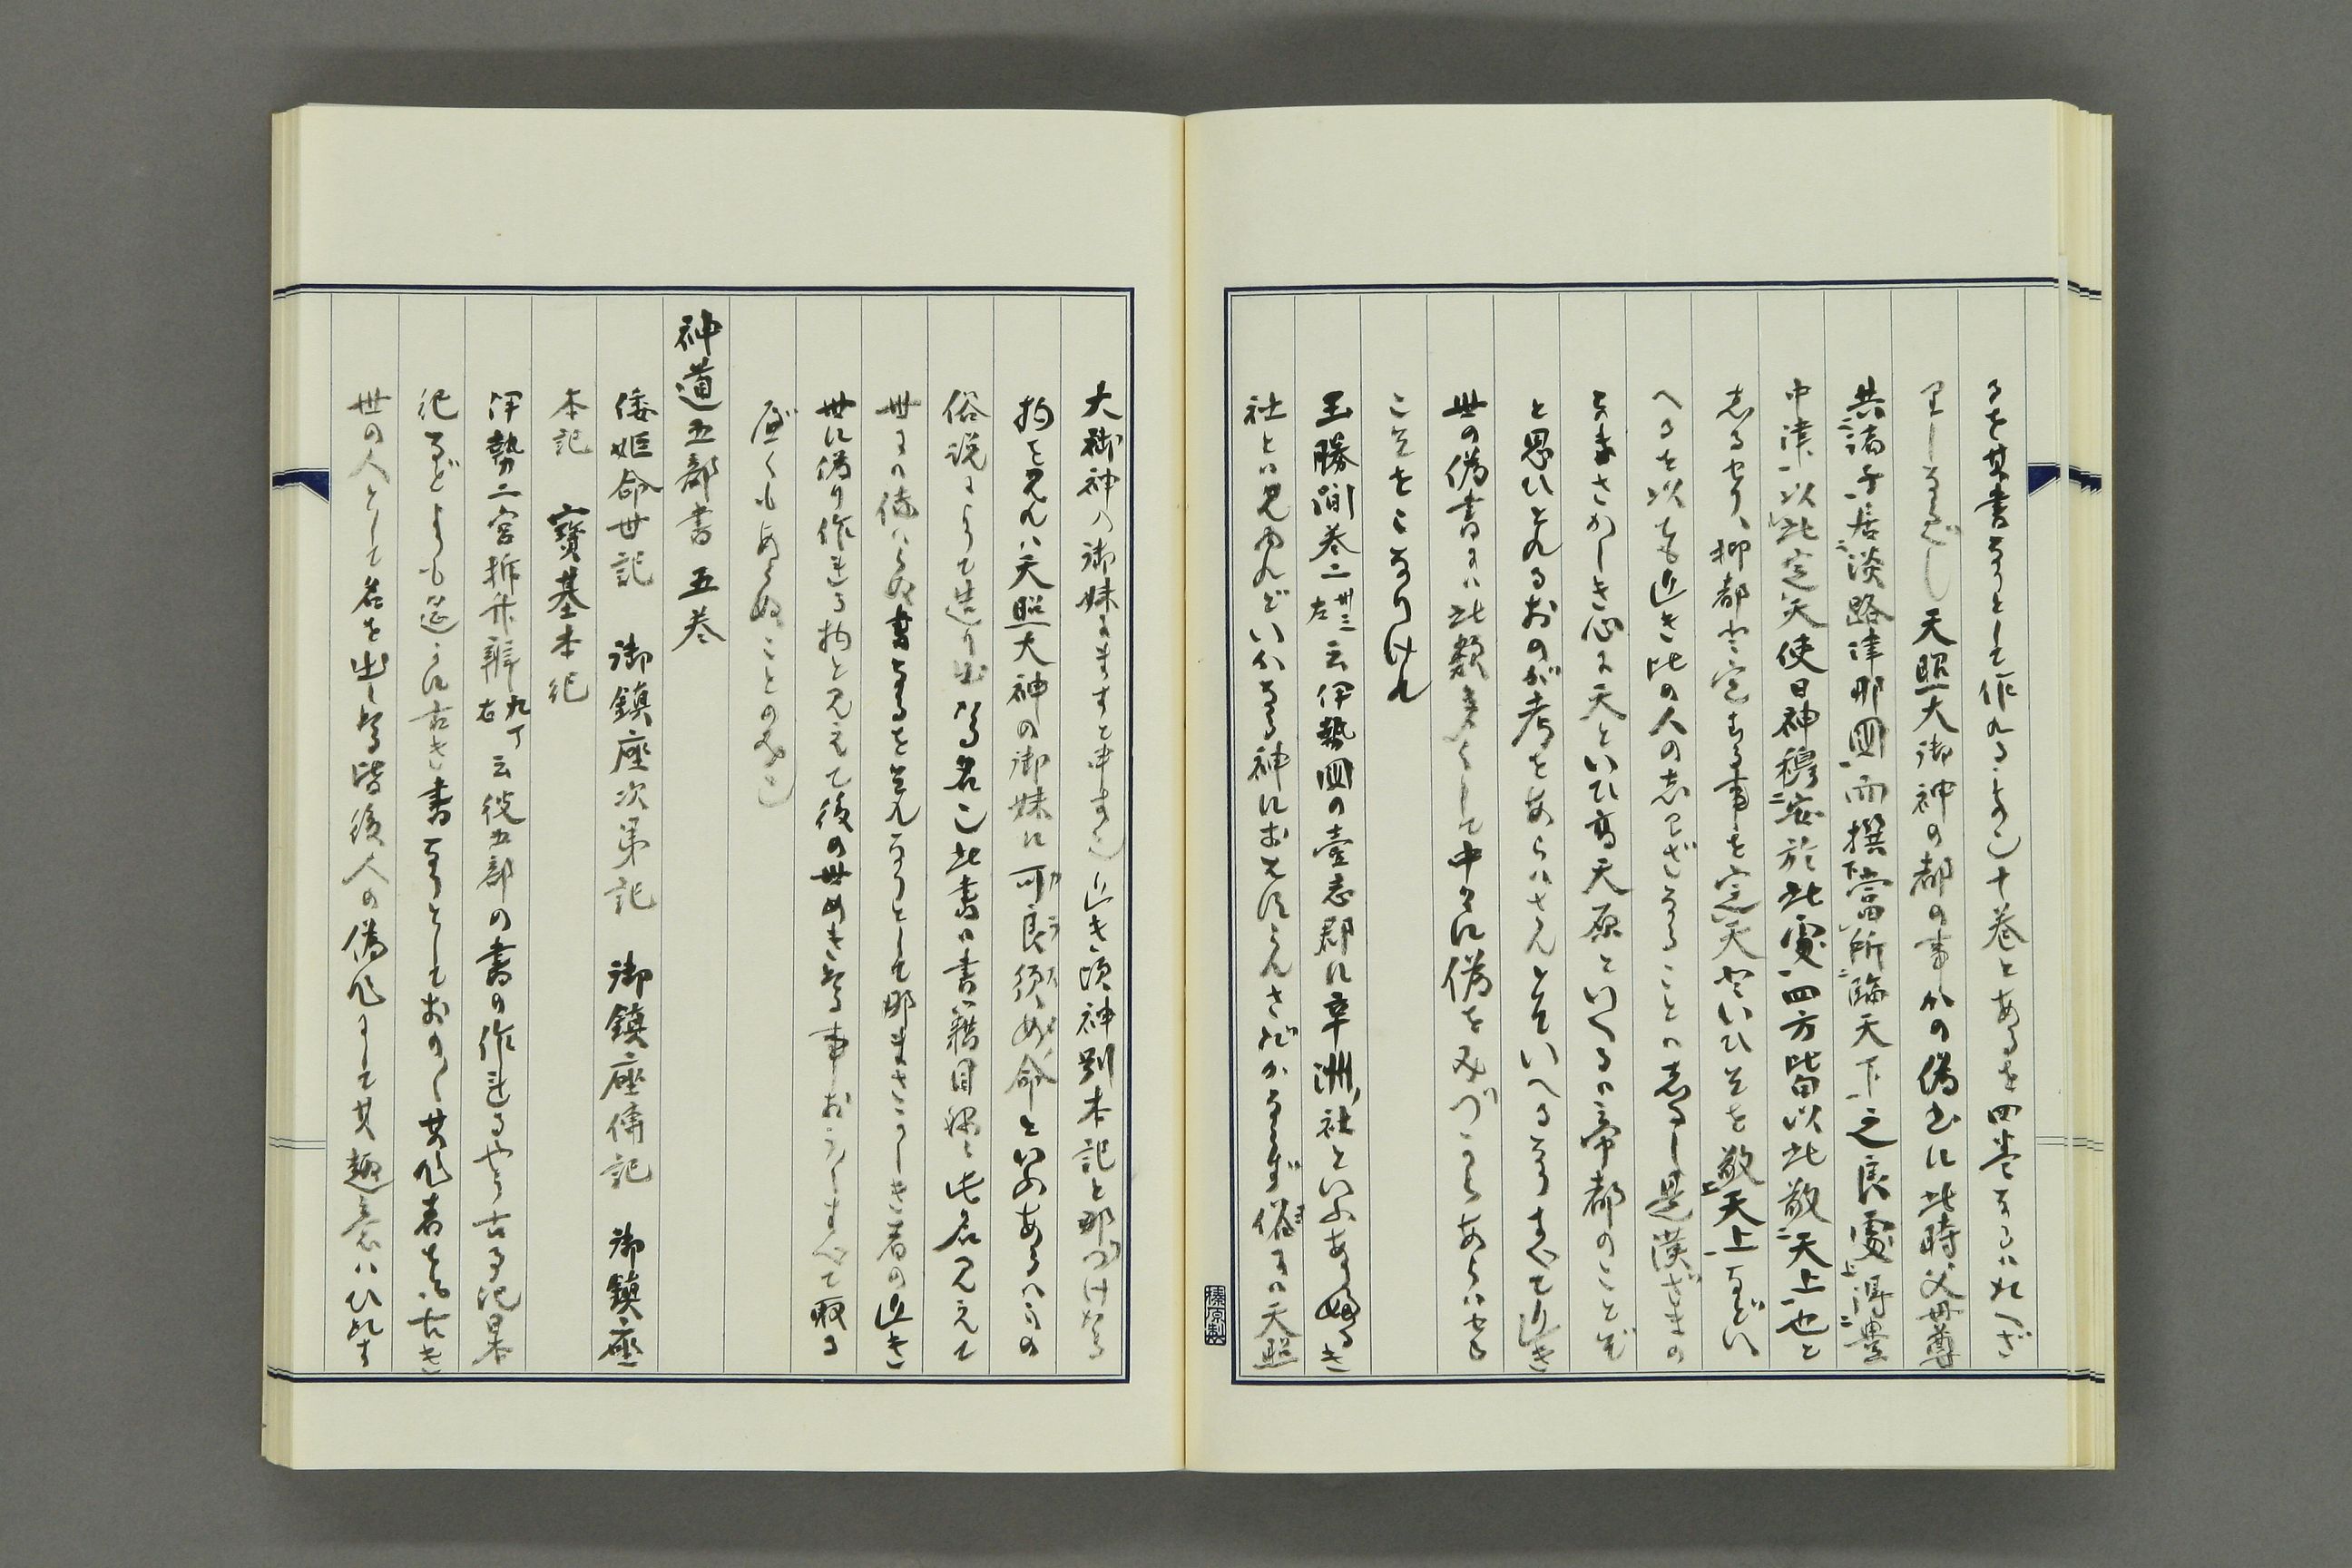 るを其書なりとして作れるもの也十巻とあるを四巻なるはれへざ
天照大御神の都の事かの偽書に此時父母尊
共諸子居淡路津那国而撰当所臨天下之良処得豊
中津以此定天使日神穆宓於此処四方皆以此敬天上也と
しるせり、抑都を定する事を定天といひそを敬天上などい
へるを以ても近き比の人のしわざなることのしるし是漢ざまの
なまさかしき心に天といひ高天原といへるは帝都のことぞ
と思ひとれるおのが考をあらはさんとていへるなりすべて近き
世の偽書には此類多くして中々に偽を みづからあらはせる
こそをこなりけれ
玉勝間巻二 卅三左 云伊勢国の壹志郡に辛洲社といふある
社とは見ゆれどいかなる神におはすらんさだかならず俗には天照
大御神の御妹にますと申す也近き頃神別本記と那づけたる
物を見れば天照大神の御妹に可良須め命といふあるはかの
俗説によりて造り出たる名也此書は書籍目録に此名見えて
世には伝はらぬ書なるをそれなりとして那まさかしき者の近き
世に偽り作れる物と見えて後の世めきたる事おほしすべて取る
に
神道五部書 五巻
倭姫命世記 御鎮座次第記 御鎮座傳記 御鎮座
本記 寶基本紀
伊勢二宮拆竹辨 九丁右 云彼五部の書の作れるやう古る記畧
記などよりも遥かに古き書なりとしておの〱其作者をも古き
世の人として名を出したる皆後人の偽作にして其趣意はひたす
榛原製